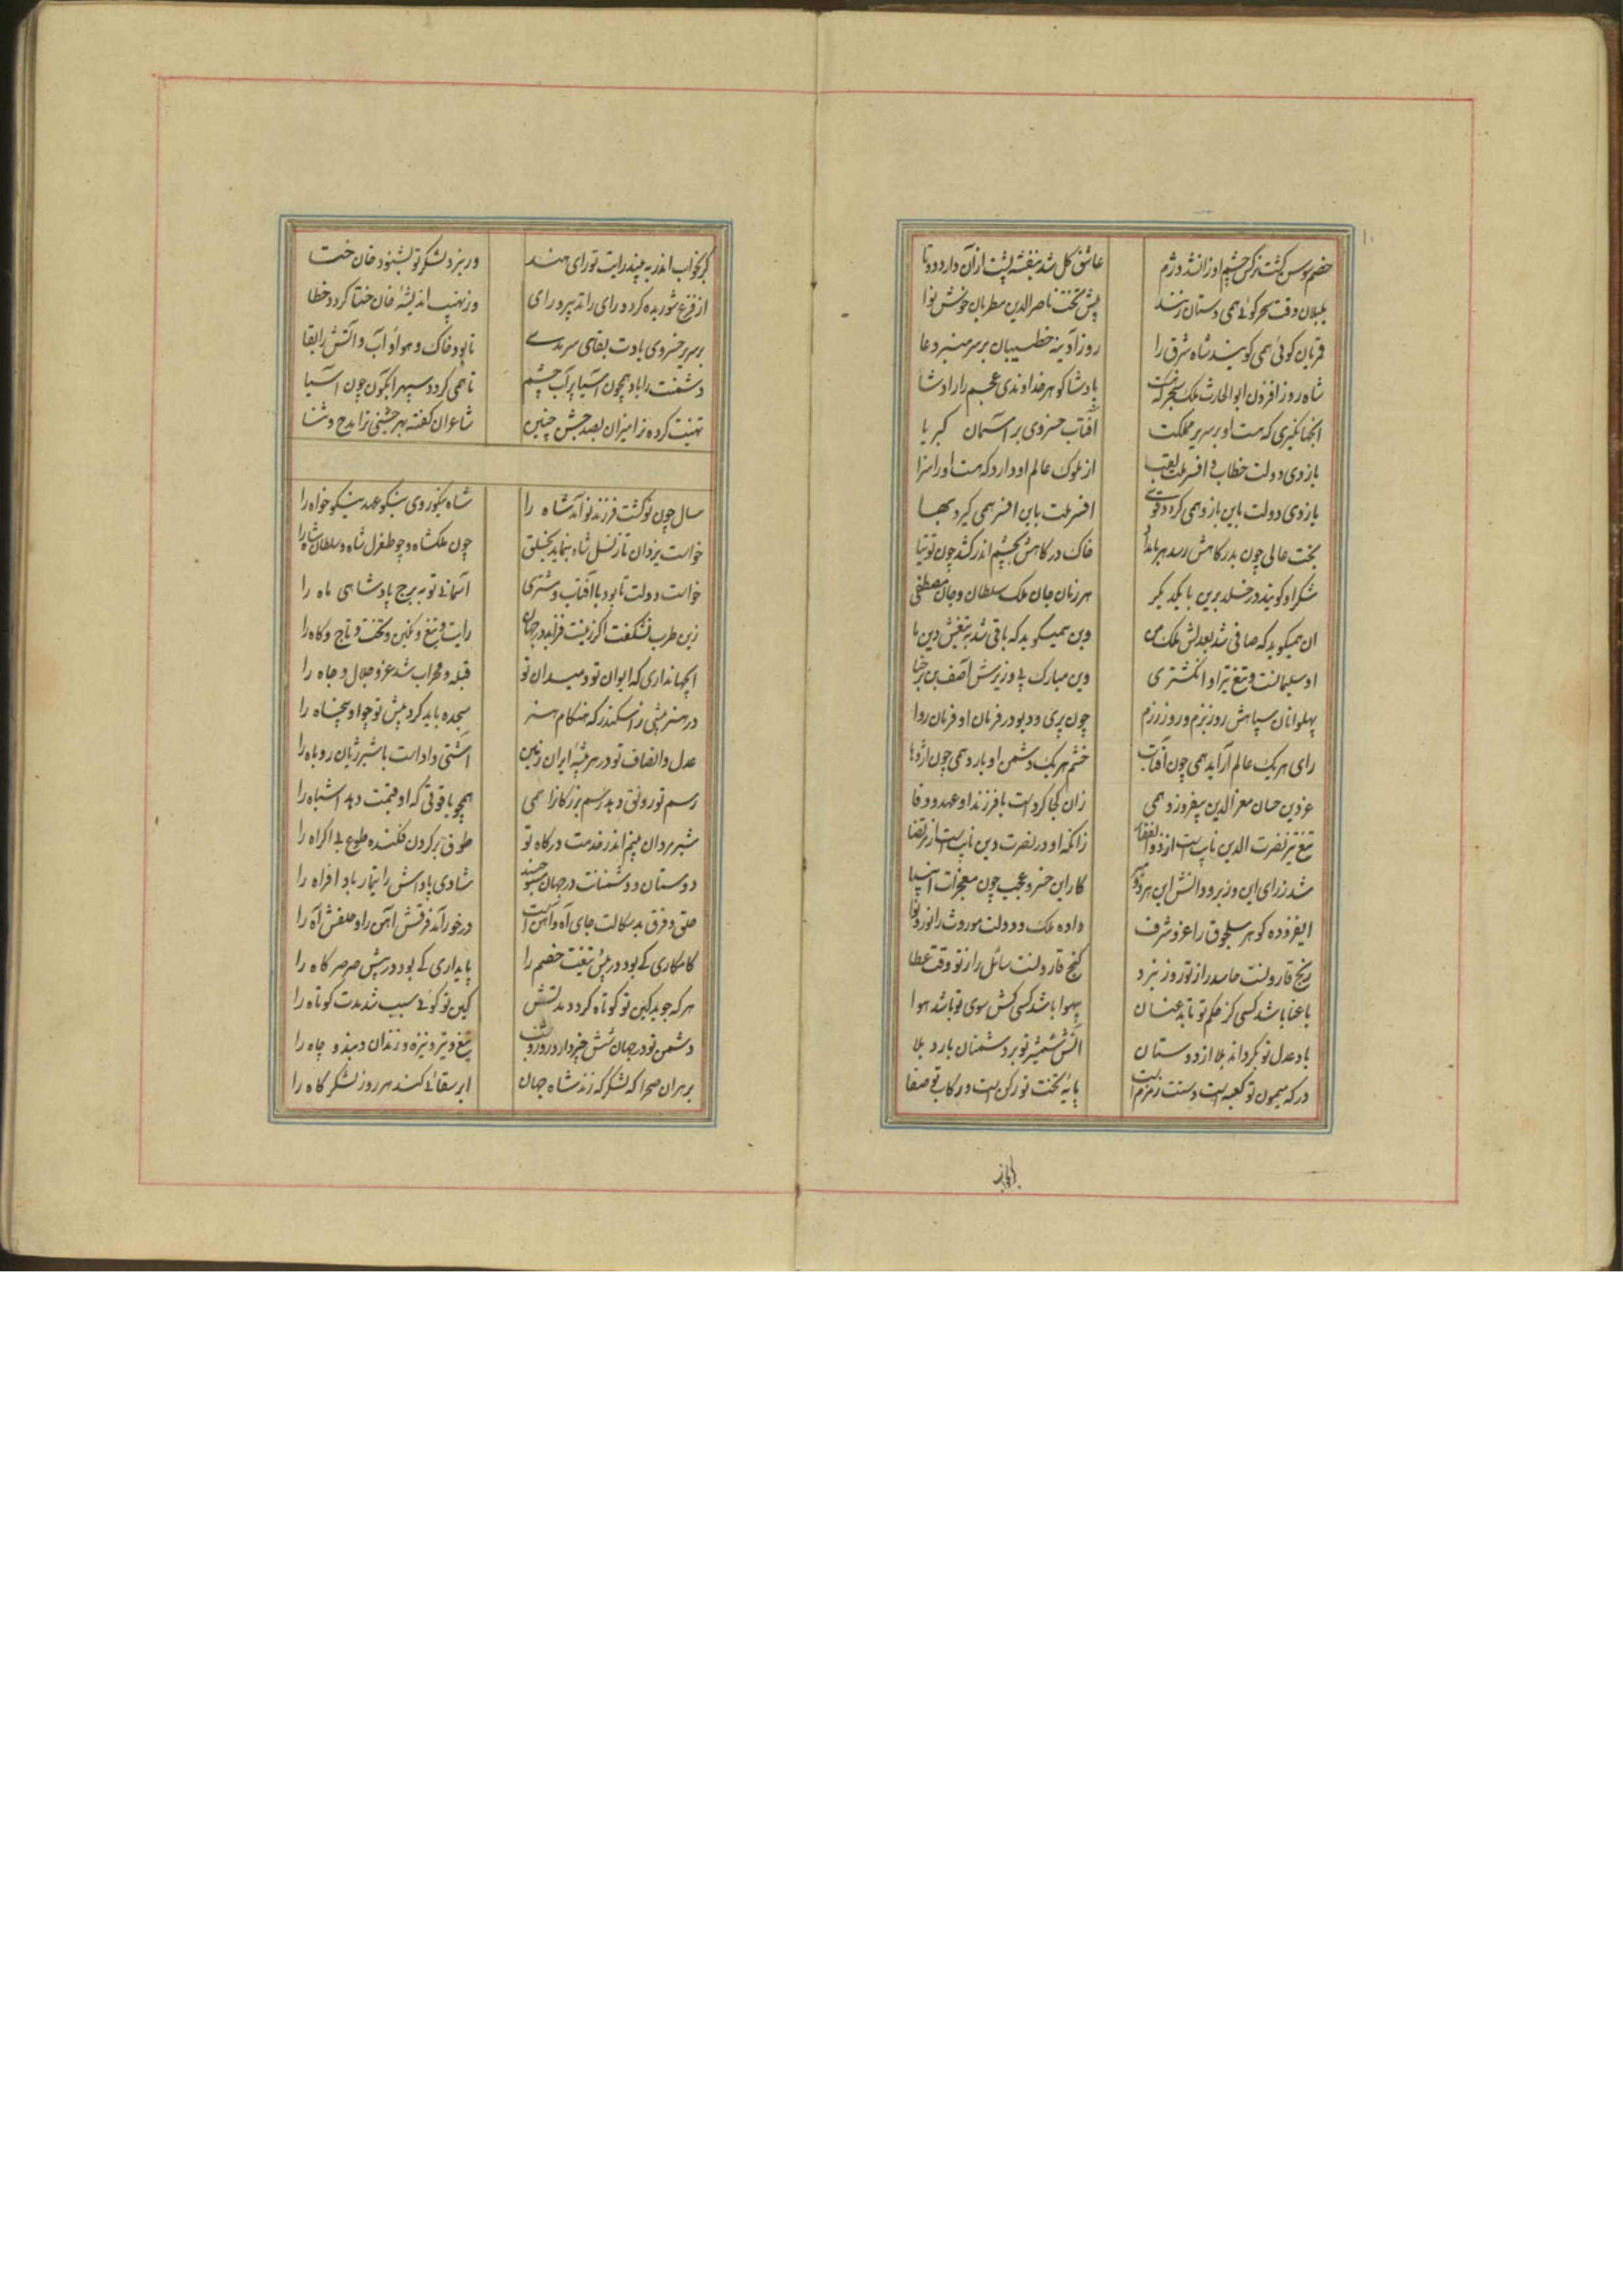 خصم سوسن گشت نرگس چشم او زان شد دژم
عاشق گل شد بنفشه پشت از آن دارد دوتا
بلبلان وقت سحر گوئی همی دستان زنند
پیش تخت ناصرالدین مطربان خوش نوا
قمریان گوئی همی گویند شاه شرق را
روز آدینه خطیبان بر سر منبر دعا
شاه روز افزون ابوالحارث ملک سنجر که هست
پادشا گوهر خداوندی عجم را پادشا
آنجهانگیری که هست او بر سریر مملکت
آفتاب خسروی بر آسمان کبریا
بازوی دولت خطاب و افسر ملت لقب
از ملوک عالم او دارد که هست او را سزا
بازوی دولت باین بازو همی گردد قوی
افسر ملت باین افسر همی گیرد بها
بخت عالی چون بدرگاهش رسد هر بامداد
خاک درگاهش بچشم اندر کشد چون توتیا
شکر او گویند در خلد برین با یکدگر
هر زمان جان ملک سلطان و جان مصطفی
آن همیگوید که صافی شد بعدلش ملک من
وین همیگوید که باقی شد بتیغش دین ما
او سلیمانست و تیغ تیز او انگشتری
وین مبارک پی وزیرش آصف بن برخیا
پهلوانان سپاهش روز بزم و روز رزم
چون پری و دیو در فرمان او فرمان روا
رای هر یک عالم آراید همی چون آفتاب
خشم هر یک دشمن اوبارد همی چون اژدها
عز دین حسان معزالدین بیفروزد همی
زان کجا کردست با فرزند او عهد و وفا
تیغ تیز نصرت الدین نایب است از ذوالفقار
زانکه او در نصرت دین نایب است از مرتضا
شد ز رای این وزیر و دانش این هر دو میر
کار این خسرو عجیب چون معجزات انبیا
ایفزوده گوهر سلجوق را عز و شرف
داده ملک و دولت موروث را نور و نوا
رنج قارونست حاسد را ز تو روز نبرد
گنج قارونست سائل را ز تو وقت عطا
با عنا باشد کسی کز حکم تو تابد عنان
بیهوا باشد کسی کش سوی تو باشد هوا
باد عدل تو بگرداند بلا از دوستان
آتش شمشیر تو بر دشمنان بارد بلا
درگه میمون تو کعبه است و دستت زمزم است
پایه تخت تو رکن است و رکاب تو صفا
گر بخواب اندر به بیند رایت تو رای هند
ور نبرد لشکر تو بشنود خان ختا
از فزع شوریده گردد رای را تدبیر و رای
وز نهیب اندیشه خان ختا گردد خطا
بر سریر خسروی بادت بقای سرمدی
تا بود خاک و هوا و آب و آتش را بقا
دشمنت را باد همچون آسیا پر آب چشم
تا همی گردد سپهر آبگون چون آسیا
تهنیت کرده ترا میران بصد جشن چنین
شاعران گفته بهر جشنی ترا مدح و ثنا
سال چون نو گشت فرزند نو آمد شاه را
شاه نیکو روی نیکو عهد نیکو خواه را
خواست یزدان تا ز نسل شاه بنماید بخلق
چون ملکشاه و چو طغرل شاه و سلطان شاه را
خواست دولت تا بود با آفتاب و مشتری
آسمانی نو به برج پادشاهی ماه را
زین طرب نشگفت اگر زینت فزاید در جهان
رایت و تیغ و نگین و تخت و تاج و گاه را
ایجهانداری که ایوان تو و میدان تو
قبله و محراب شد عز و جلال و جاه را
در هنر بیشی ز اسکندر که هنگام هنر
سجده باید کرد پیش تو چو او پنجاه را
عدل و انصاف تو در هر بیشه ایران زمین
آشتی دادست با شیر ژیان روباه را
رسم تو رونق دهد رسم بزرگان را همی
همچو یاقوتی که او قیمت دهد اشباه را
شیر مردان بینم اندر خدمت درگاه تو
طوق بر گردن فکنده طوع بی اکراه را
دوستان و دشمنانت در جهان
شادی پاداش را تیمار باد افراه را
حلق و فرق بد سگالت جای آه و آهن است
درخور آمد فرقش آهن را و حلقش آه را
کامکاری کی بود در پیش تیغت خصم را
پایداری کی بود در پیش صرصر کاه را
هر که جوید کین تو کوتاه گردد مدتش
کین تو گوئی سبب شد مدت کوتاه را
دشمن تو در جهان شش خیر دارد روز و شب
تیغ و تیر و نیزه و زندان و بند و چاه را
بر هر آن صحرا که لشکرگه زند شاه جهان
ابر سقائی کند هر روز لشکرگاه را